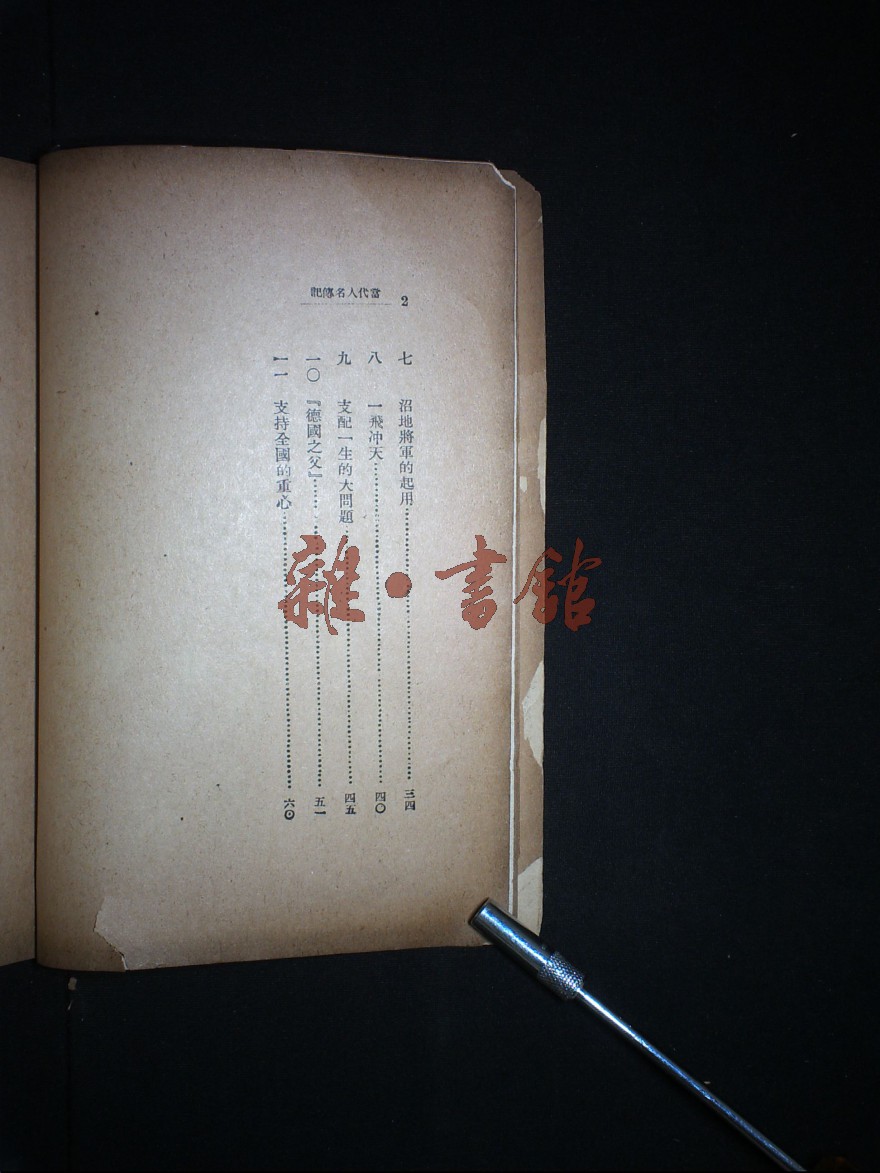 2
當代人名傳記
七 沼地將軍的起用…………三四
八 一飛冲天…………四〇
九 支配一生的大問題…………四五
一〇 『德國之父』…………五一
一一 支持全國的重心…………六〇
雜·書館